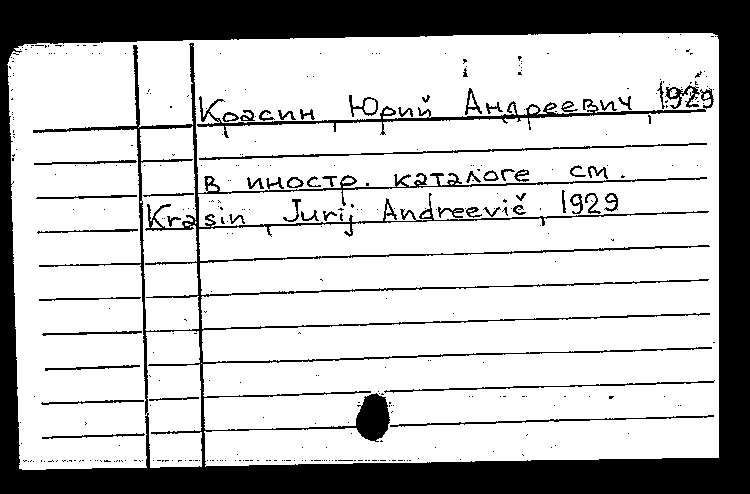 Красин, Юрий Андреевич, 1929
в иностр. каталоге см.
Krasin, Jurij Andreevič, 1929